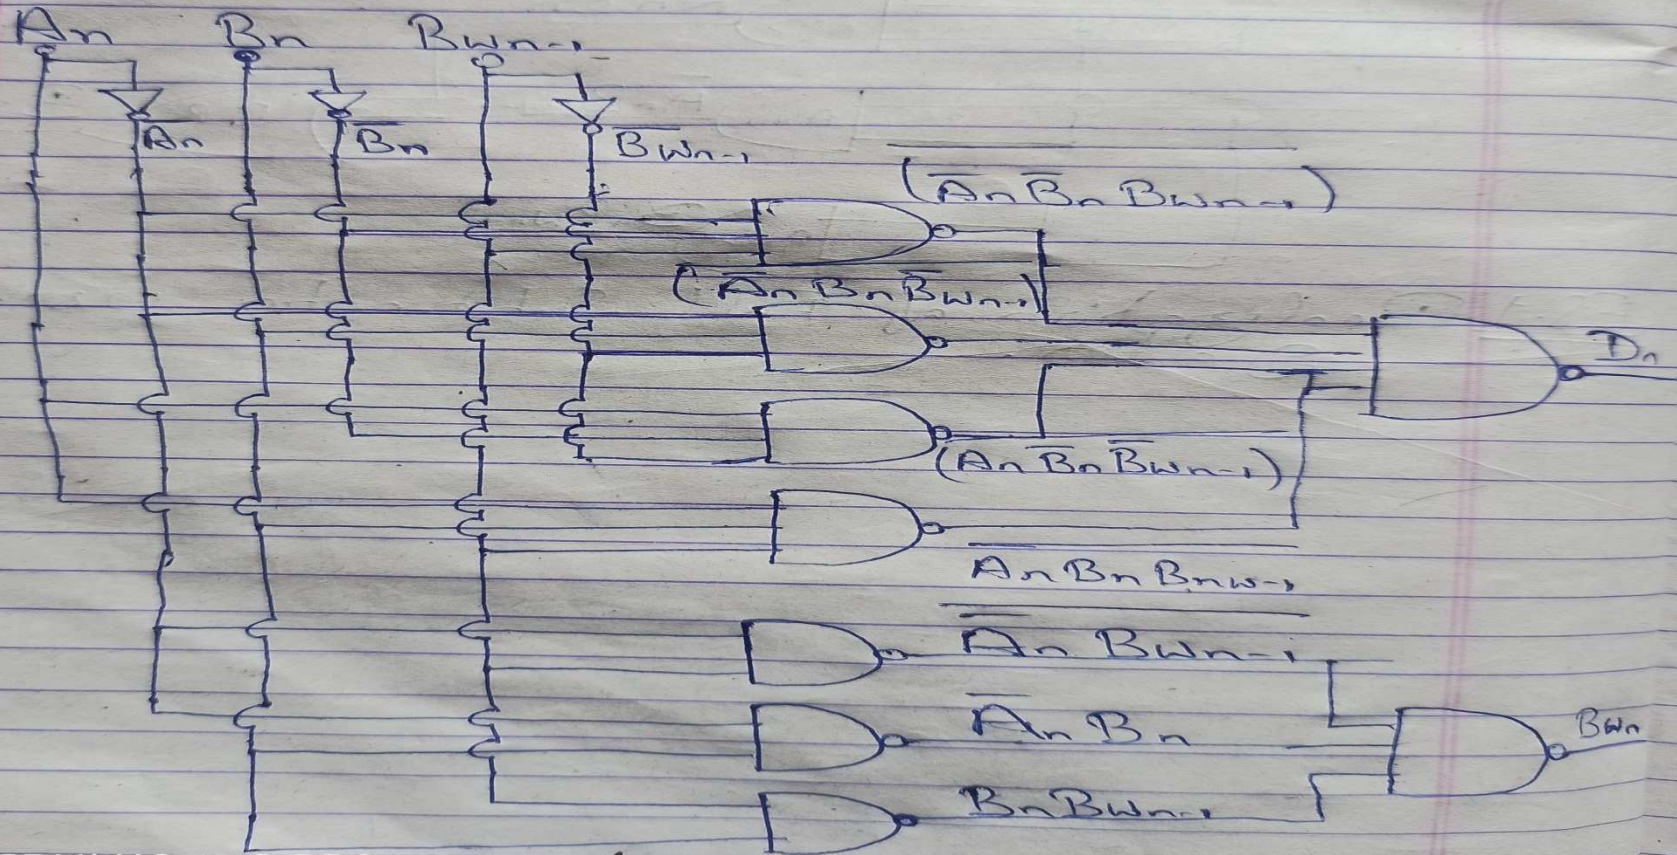 An Bn Bwn-1
A̅n B̅n B̅w̅n-1
(A̅n B̅n Bwn-1)
(A̅n Bn B̅wn-1)
Dn
(An B̅n B̅wn-1)
An Bn Bnw-1
A̅n Bwn-1
A̅n Bn
Bwn
BnBwn-1